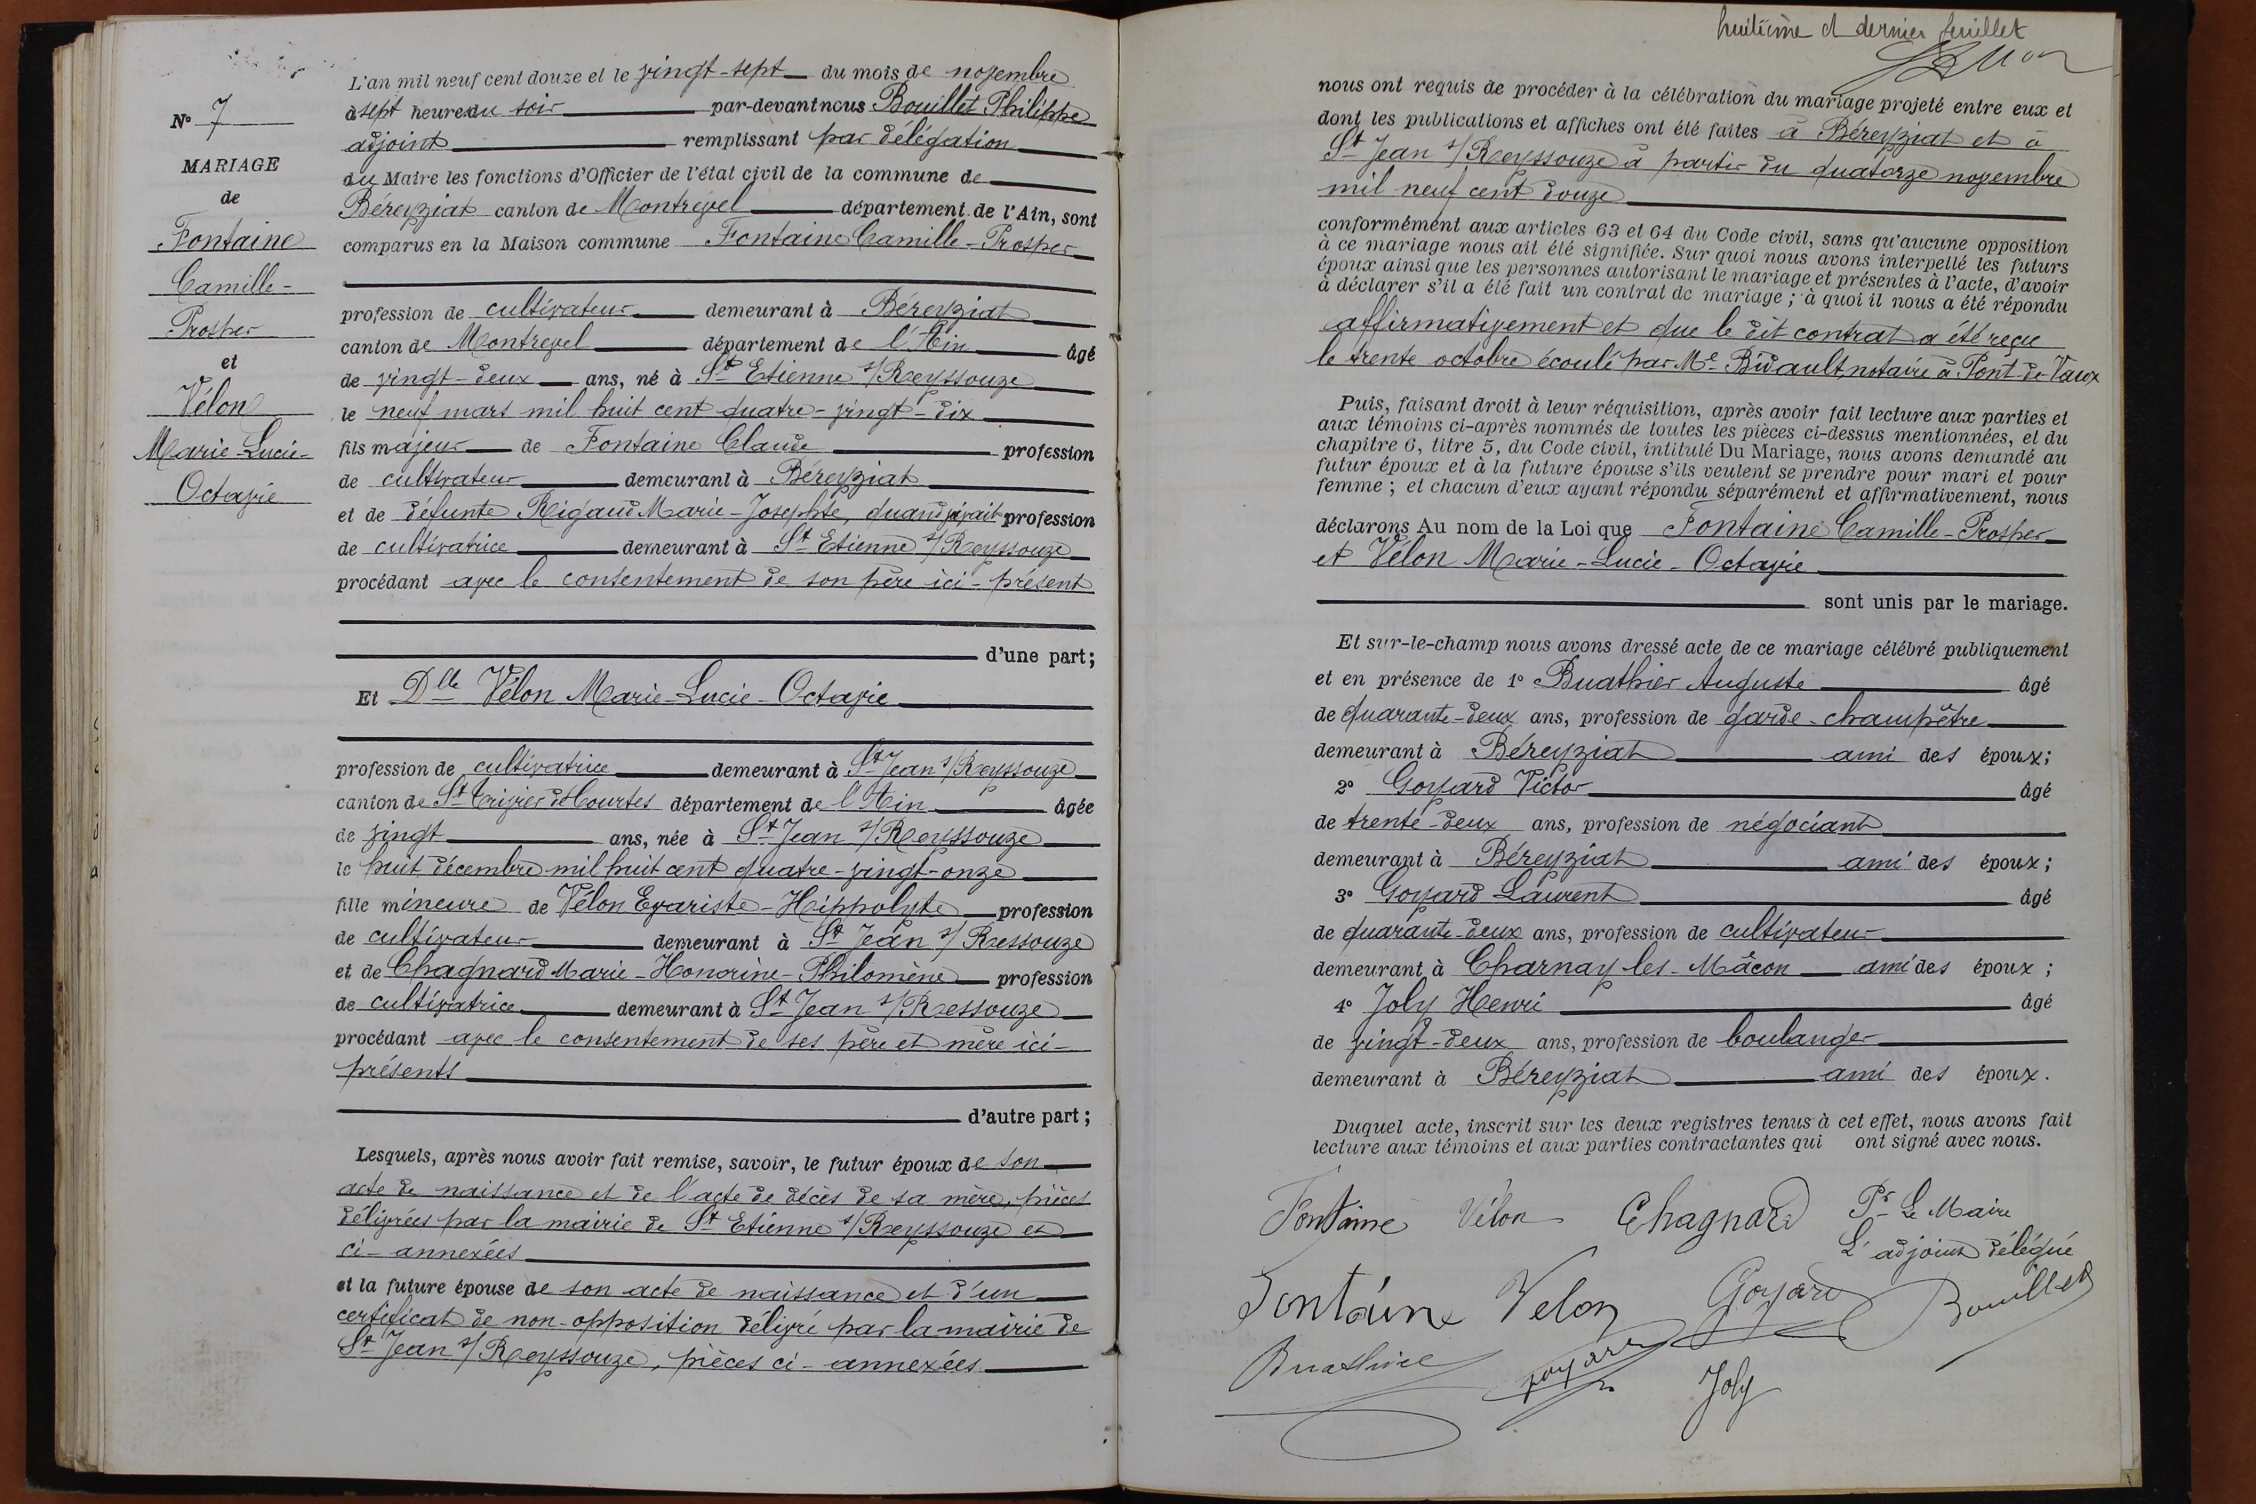 N° 7
MARIAGE
de
Fontaine
Camille-
Prosper
et
Vélon
Marie-Lucie-
Octavie
L'an mil neuf cent douze et le vingt-sept du mois de novembre
à sept heures du soir par-devant nous Bouillet Philippe
adjoint remplissant par délégation
du Maire les fonctions d'Officier de l'état civil de la commune de
Béreyziat canton de Montrevel département de l'Ain, sont
comparus en la Maison commune Fontaine Camille-Prosper
profession de cultivateur demeurant à Béreyziat
canton de Montrevel département de l'Ain âgé
de vingt-deux ans, né à St Etienne s/Reyssouze
le neuf mars mil huit cent quatre-vingt-dix
fils majeur de Fontaine Claude profession
de cultivateur demeurant à Béreyziat
et de défunte Rigaud Marie-Josephte, quand vivait profession
de cultivatrice demeurant à St Etienne s/Reyssouze
procédant avec le consentement de son père ici-présent
d'une part;
Et Dlle Vélon Marie-Lucie-Octavie
profession de cultivatrice demeurant à St Jean s/Reyssouze
canton de St Trivier de Courtes département de l'Ain âgée
de vingt ans, née à St Jean s/Reyssouze
le huit décembre mil huit cent quatre-vingt-onze
fille mineure de Vélon Evariste-Hippolyte profession
de cultivateur demeurant à St Jean s/Ressouze
et de Chagnard Marie-Honorine-Philomène profession
de cultivatrice demeurant à St Jean s/Ressouze
procédant avec le consentement de ses père et mère ici-
présents
d'autre part;
Lesquels, après nous avoir fait remise, savoir, le futur époux de son
acte de naissance et de l'acte de décès de sa mère, pièces
délivrées par la mairie de St Etienne s/Reyssouze et
ci-annexées
et la future épouse de son acte de naissance et d'un
certificat de non-opposition délivré par la mairie de
St Jean s/Reyssouze, pièces ci-annexées
huitième et dernier feuillet
nous ont requis de procéder à la célébration du mariage projeté entre eux et
dont les publications et affiches ont été faites à Béreyziat et à
St Jean s/Reyssouze à partir du quatorze novembre
mil neuf cent douze
conformément aux articles 63 et 64 du Code civil, sans qu'aucune opposition
à ce mariage nous ait été signifiée. Sur quoi nous avons interpellé les futurs
époux ainsi que les personnes autorisant le mariage et présentes à l'acte, d'avoir
à déclarer s'il a été fait un contrat de mariage; à quoi il nous a été répondu
affirmativement et que le dit contrat a été reçu
le trente octobre écoulé par Me Bidault, notaire à Pont-de-Vaux
Puis, faisant droit à leur réquisition, après avoir fait lecture aux parties et
aux témoins ci-après nommés de toutes les pièces ci-dessus mentionnées, et du
chapitre 6, titre 5, du Code civil, intitulé Du Mariage, nous avons demandé au
futur époux et à la future épouse s'ils veulent se prendre pour mari et pour
femme; et chacun d'eux ayant répondu séparément et affirmativement, nous
déclarons Au nom de la Loi que Fontaine Camille-Prosper
et Vélon Marie-Lucie-Octavie
sont unis par le mariage.
Et sur-le-champ nous avons dressé acte de ce mariage célébré publiquement
et en présence de 1° Buathier Auguste âgé
de quarante-deux ans, profession de garde-champêtre
demeurant à Béreyziat ami des époux;
2° Goyard Victor âgé
de trente-deux ans, profession de négociant
demeurant à Béreyziat ami des époux;
3° Goyard Laurent âgé
de quarante-deux ans, profession de cultivateur
demeurant à Charnay-les-Mâcon ami des époux;
4° Joly Henri âgé
de vingt-deux ans, profession de boulanger
demeurant à Béreyziat ami des époux.
Duquel acte, inscrit sur les deux registres tenus à cet effet, nous avons fait
lecture aux témoins et aux parties contractantes qui ont signé avec nous.
Fontaine Vélon Chagnard Pr Le Maire
L'adjoint délégué
Fontaine Velon Goyard Bouillet
Buathier goyard Joly